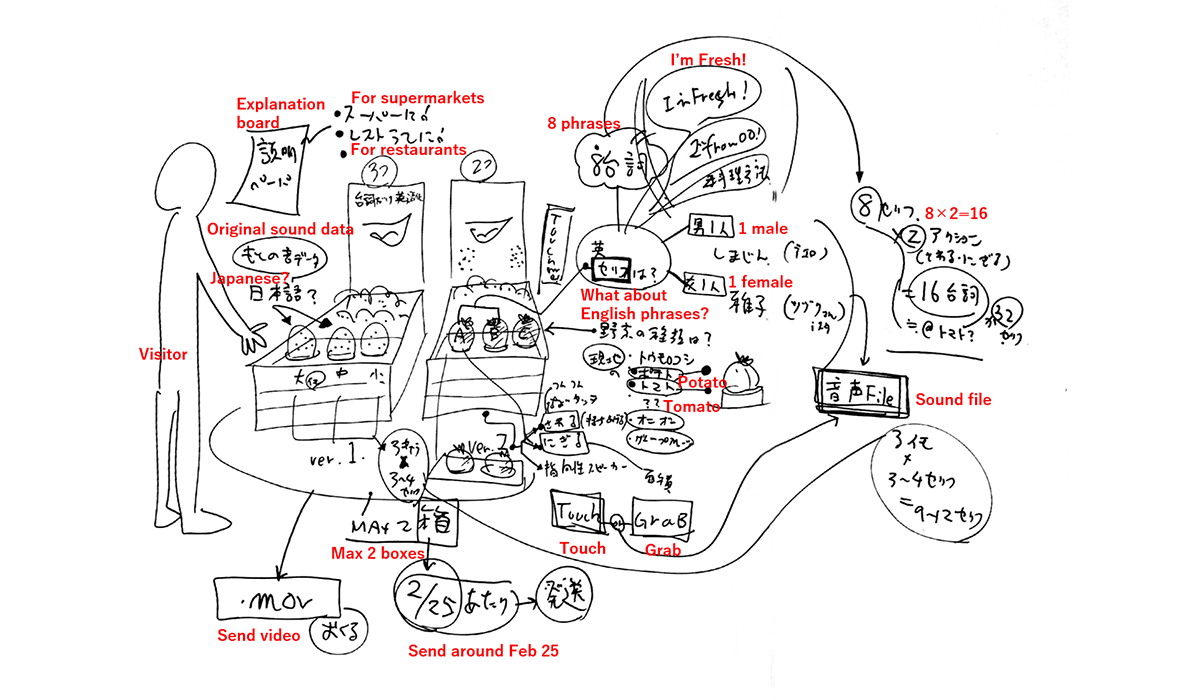 Explanation
board
説明
ペーパ
For supermarkets
・スーパーに!
・レストランに!
・For restaurants
3つ
2つ
Touch me
8 phrases
8台詞
I'm Fresh!
I'm Fresh!
I'm from OO!
料理方法
Original sound data
もとの音データ
Japanese?
日本語?
Visitor
大 中 小
ver.1.
3〜4
セリフ
A
B
C
英
セリフは?
What about
English phrases?
男1人
1 male
しまじん
女1人
1 female
雅子
野菜の種類は?
現地の
・トウモロコシ
・ポテト
Potato
・トマト
Tomato
??
・オニオン
ver.2
さわる
にぎる
指向性スピーカー
8セリフ
8×2=16
×2アクション
=16台詞
≒@トマト?
32
セリフ
音声File
Sound file
3イモ
×
3〜4セリフ
=9〜12セリフ
Touch
Touch
GraB
Grab
MAX 2 箱
Max 2 boxes
.mov
おくる
Send video
2/25あたり
発送
Send around Feb 25